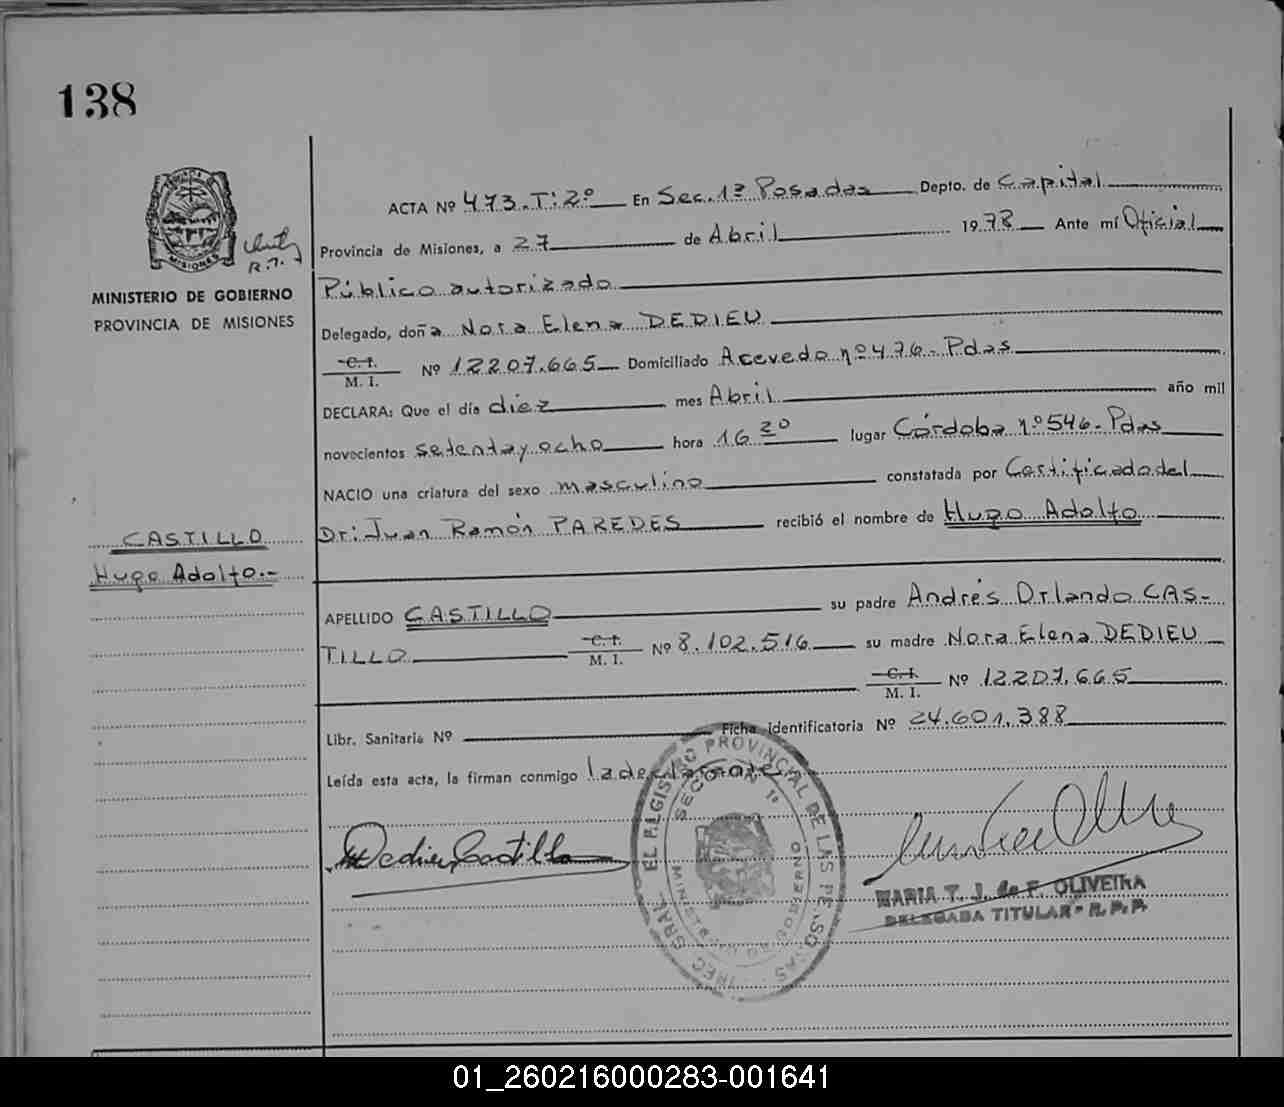 138
MISIONES
R.P.
MINISTERIO DE GOBIERNO
PROVINCIA DE MISIONES
CASTILLO
Hugo Adolfo.-
ACTA Nº 473.T:2º En Sec. 1ª Posadas Depto. de Capital
Provincia de Misiones, a 27 de Abril 1978 Ante mí Oficial
Público autorizado
Delegado, doña Nora Elena DEDIEU
C. I.
M. I. Nº 12207.665 Domiciliado Acevedo nº 476-Pdas
DECLARA: Que el día diez mes Abril año mil
novecientos setenta y ocho hora 16 30 lugar Córdoba nº 546-Pdas
NACIO una criatura del sexo masculino constatada por Certificado del
Dr: Juan Ramón PAREDES recibió el nombre de Hugo Adolfo
APELLIDO CASTILLO su padre Andrés Orlando CAS-
TILLO C. I. M. I. Nº 8.102.516 su madre Nora Elena DEDIEU
C. I. M. I. Nº 12207.665
Libr. Sanitaria Nº Ficha identificatoria Nº 24.601.388
Leída esta acta, la firman conmigo la declarante
Dedieu Castillo
EL REGISTRO PROVINCIAL DE LAS PERSONAS
SECCION 1ª
MINISTERIO DE GOBIERNO
MARIA T. J. de F. OLIVEIRA
DELEGADA TITULAR - R. P. P.
01_260216000283-001641